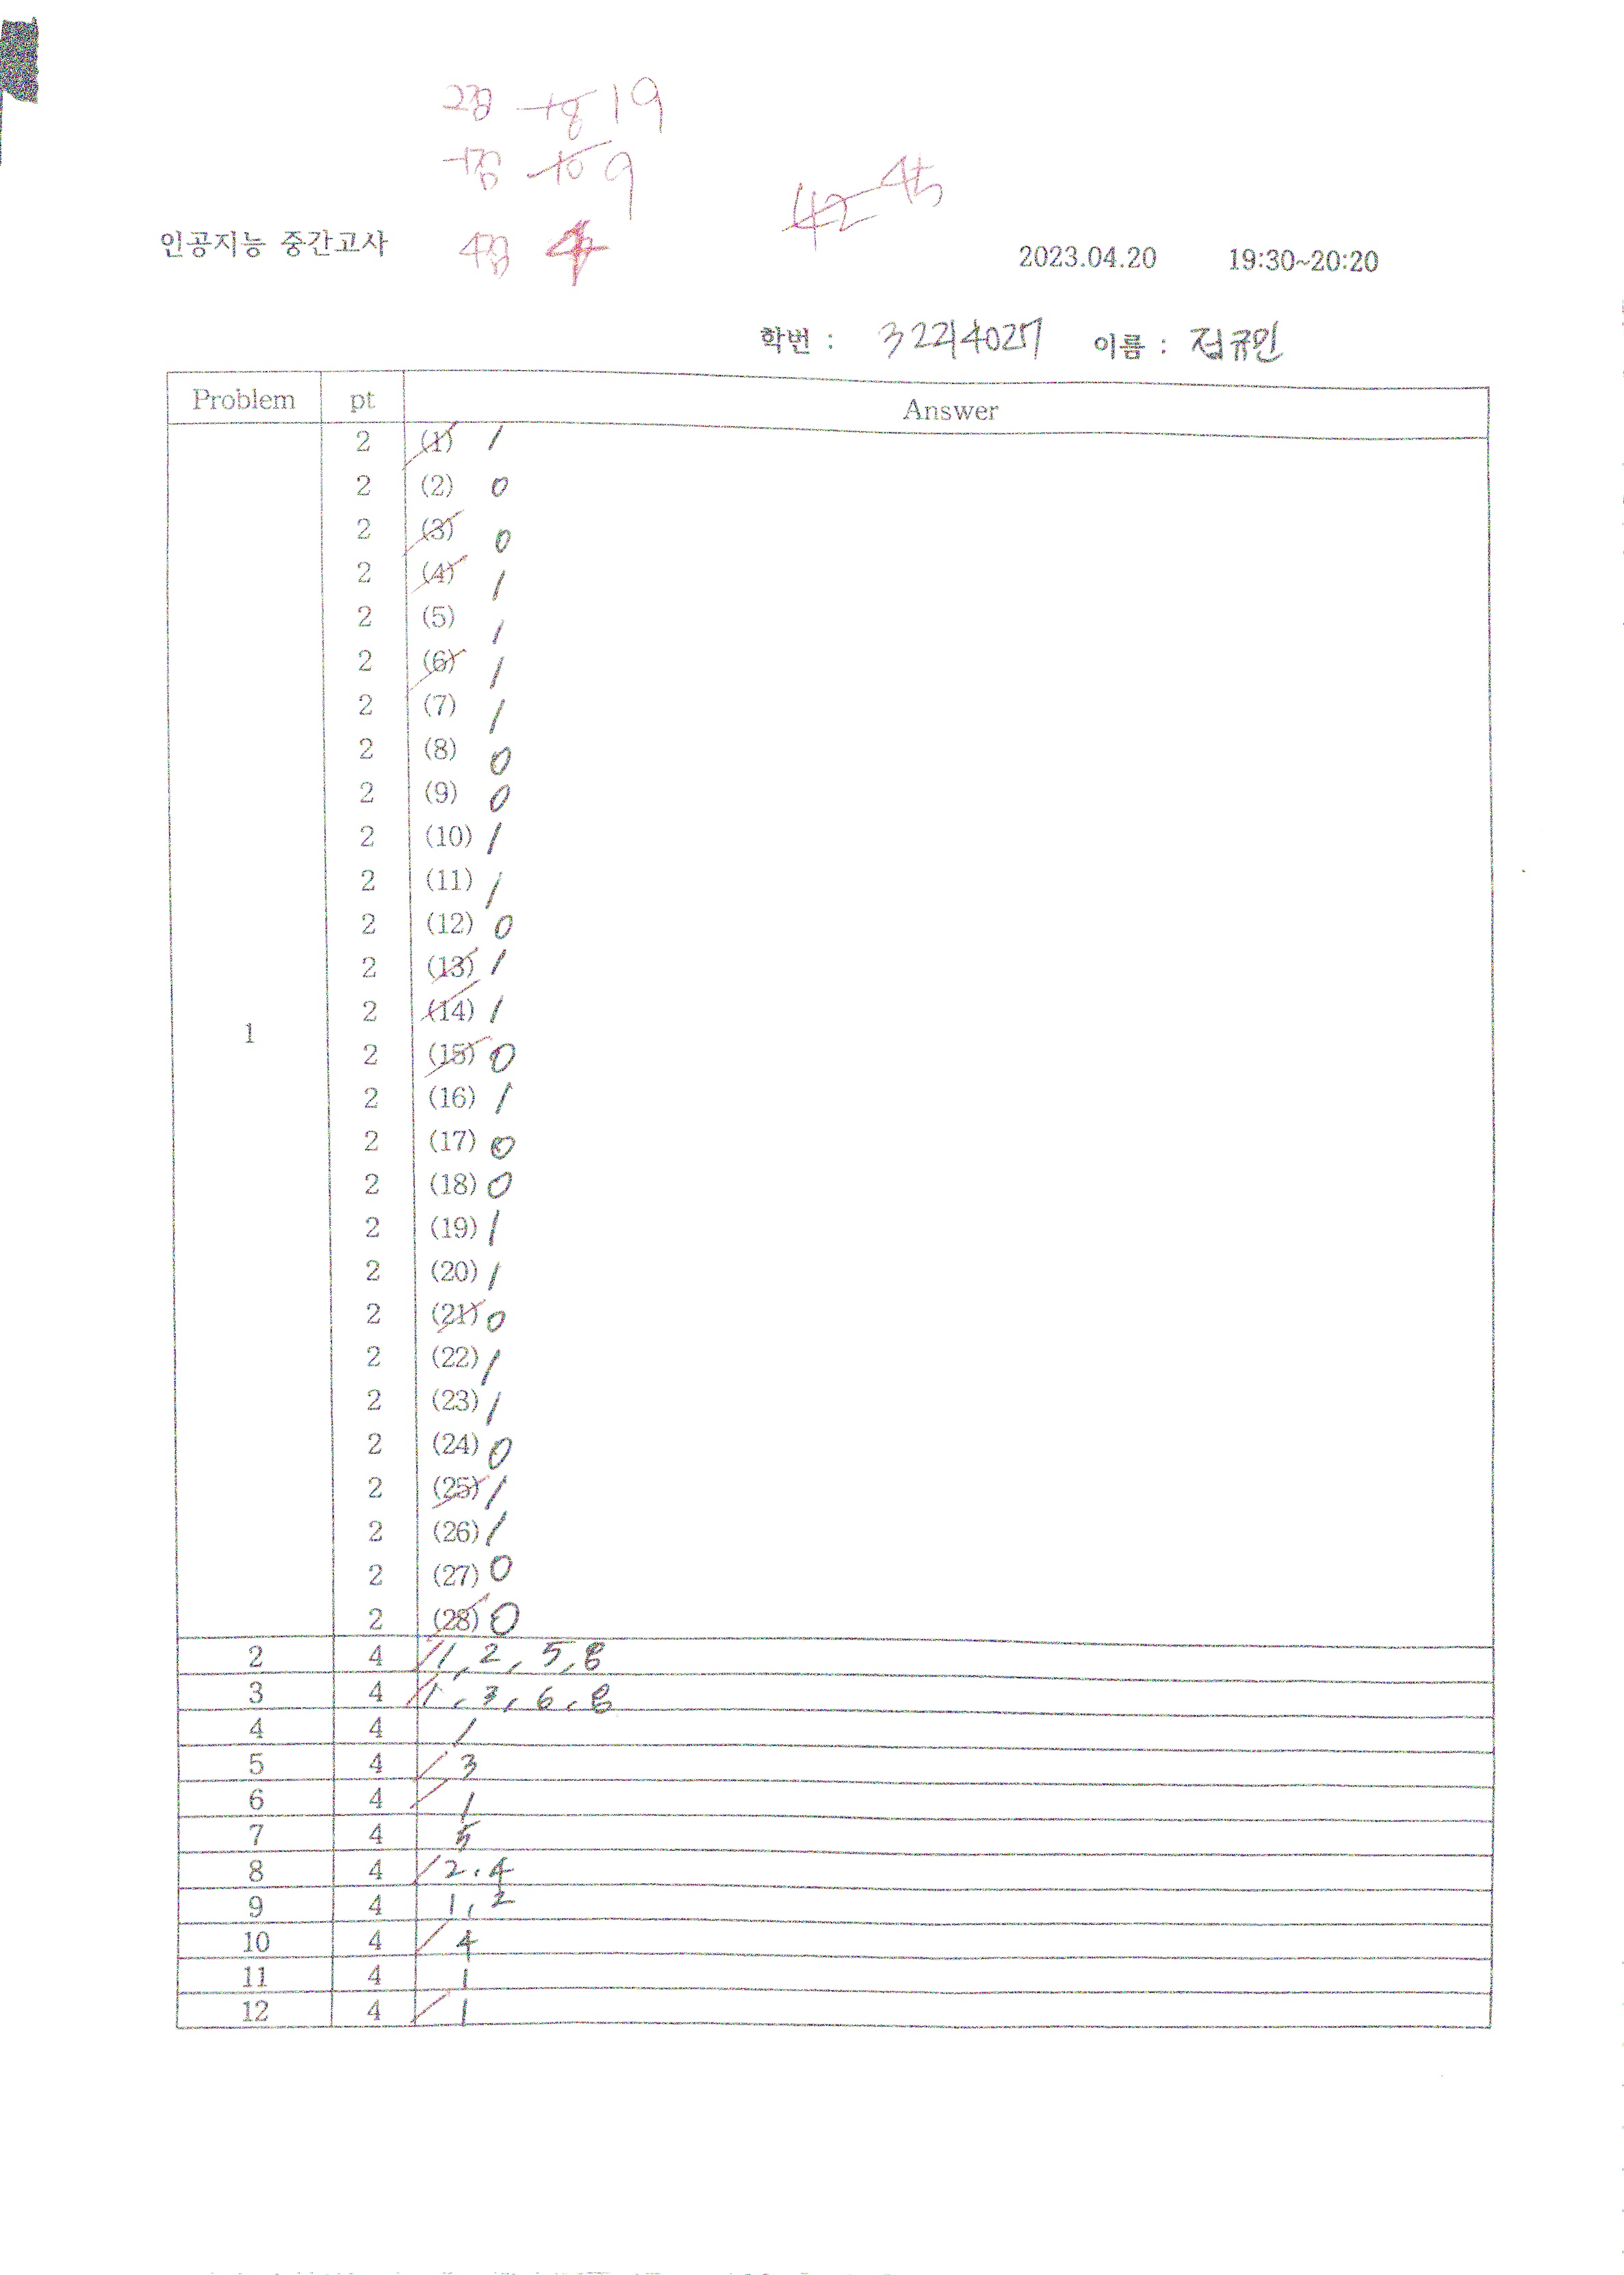 2점 18 19
-1점 10 9
42 45
인공지능 중간고사 4점 4 2023.04.20 19:30~20:20
학번 : 32214027 이름 : 정규민
Problem pt Answer
2 (1) 1
2 (2) 0
2 (3) 0
2 (4) 1
2 (5) 1
2 (6) 1
2 (7) 1
2 (8) 0
2 (9) 0
2 (10) 1
2 (11) 1
2 (12) 0
2 (13) 1
1 2 (14) 1
2 (15) 0
2 (16) 1
2 (17) 0
2 (18) 0
2 (19) 1
2 (20) 1
2 (21) 0
2 (22) 1
2 (23) 1
2 (24) 0
2 (25) 1
2 (26) 1
2 (27) 0
2 (28) 0
2 4 1, 2, 5, 8
3 4 1, 3, 6, 8
4 4 1
5 4 3
6 4 1
7 4 5
8 4 2, 4
9 4 1, 2
10 4 4
11 4 1
12 4 1